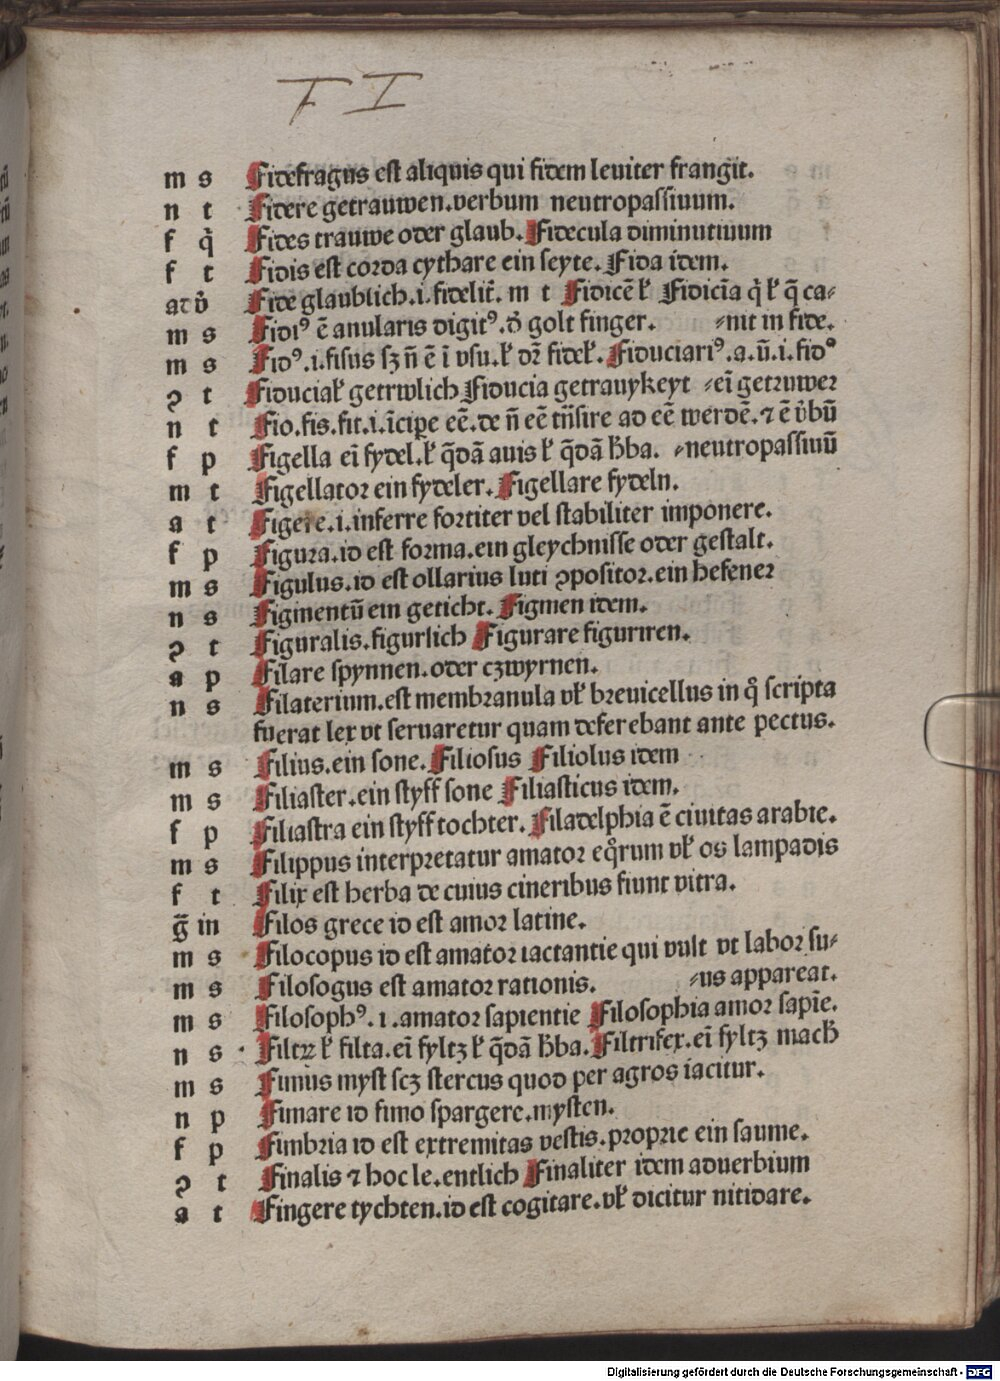 F I
m s Fidefragus est aliquis qui fidem leuiter frangit.
n t Fidere getrauwen.verbum neutropassiuum.
f q̄ Fides trauwe oder glaub. Fidecula diminutiuum
f t Fidis est corda cythare ein seyte. Fida idem.
adv̓ Fide glaublich.i.fidelit̄. m t Fidicē ł Fidicīa q̇ ł q̄ ca⸗
m s Fidiꝰ ē anularis digitꝰ.d̓ golt finger. ⸗nit in fide.
m s Fidꝰ.i.fisus sꝫ n̄ ē ī vsu.ł dr̄ fidel̄. Fiduciariꝰ.a.ū.i.fidꝰ
ꝯ t Fiduciał getrwlich Fiducia getrauykeyt ⸗eī getruwer
n t Fio.fis.fit.i.īcipe eē.de n̄ eē trāsire ad eē werdē.⁊ ē v̓bū
f p Figella eī fydel.ł q̄dā auis ł q̄dā h̄ba. ⸗neutropassiuū
m t Figellator ein fydeler. Figellare fydeln.
a t Figere.i.inferre fortiter vel stabiliter imponere.
f p Figura.id est forma.ein gleychnisse oder gestalt.
m s Figulus.id est ollarius luti ꝯpositor.ein hefener
n s Figmentū ein geticht. Figmen idem.
ꝯ t Figuralis.figurlich Figurare figuriren.
a p Filare spynnen.oder czwyrnen.
n s Filaterium.est membranula vł breuicellus in q̊ scripta
fuerat lex vt seruaretur quam deferebant ante pectus.
m s Filius.ein sone. Filiosus Filiolus idem
m s Filiaster.ein styff sone Filiasticus idem.
f p Filiastra ein styff tochter. Filadelphia ē ciuitas arabie.
m s Filippus interpretatur amator eq̊rum vł os lampadis
f t Filix est herba de cuius cineribus fiunt vitra.
ḡ in Filos grece id est amor latine.
m s Filocopus id est amator iactantie qui vult vt labor su⸗
m s Filosogus est amator rationis. ⸗us appareat.
m s Filosophꝰ.i.amator sapientie Filosophia amor sapīe.
n s Filtꝝ ł filta.eī fyltz ł q̄dā h̄ba. Filtrifex.eī fyltz mach̄
m s Fimus myst scꝫ stercus quod per agros iacitur.
n p Fimare id fimo spargere.mysten.
f p Fimbria id est extremitas vestis.proprie ein saume.
ꝯ t Finalis ⁊ hoc le.entlich Finaliter idem aduerbium
a t Fingere tychten.id est cogitare.vł dicitur nitidare.
Digitalisierung gefördert durch die Deutsche Forschungsgemeinschaft - DFG